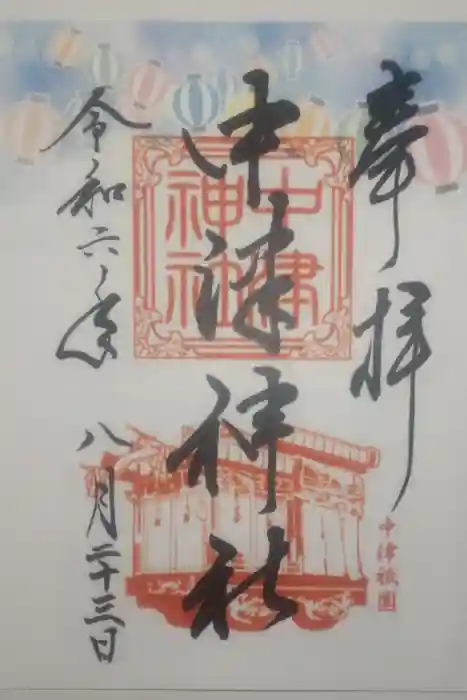 奉拝
中津神社
中津
神社
令和六年 八月二十三日
中津祇園